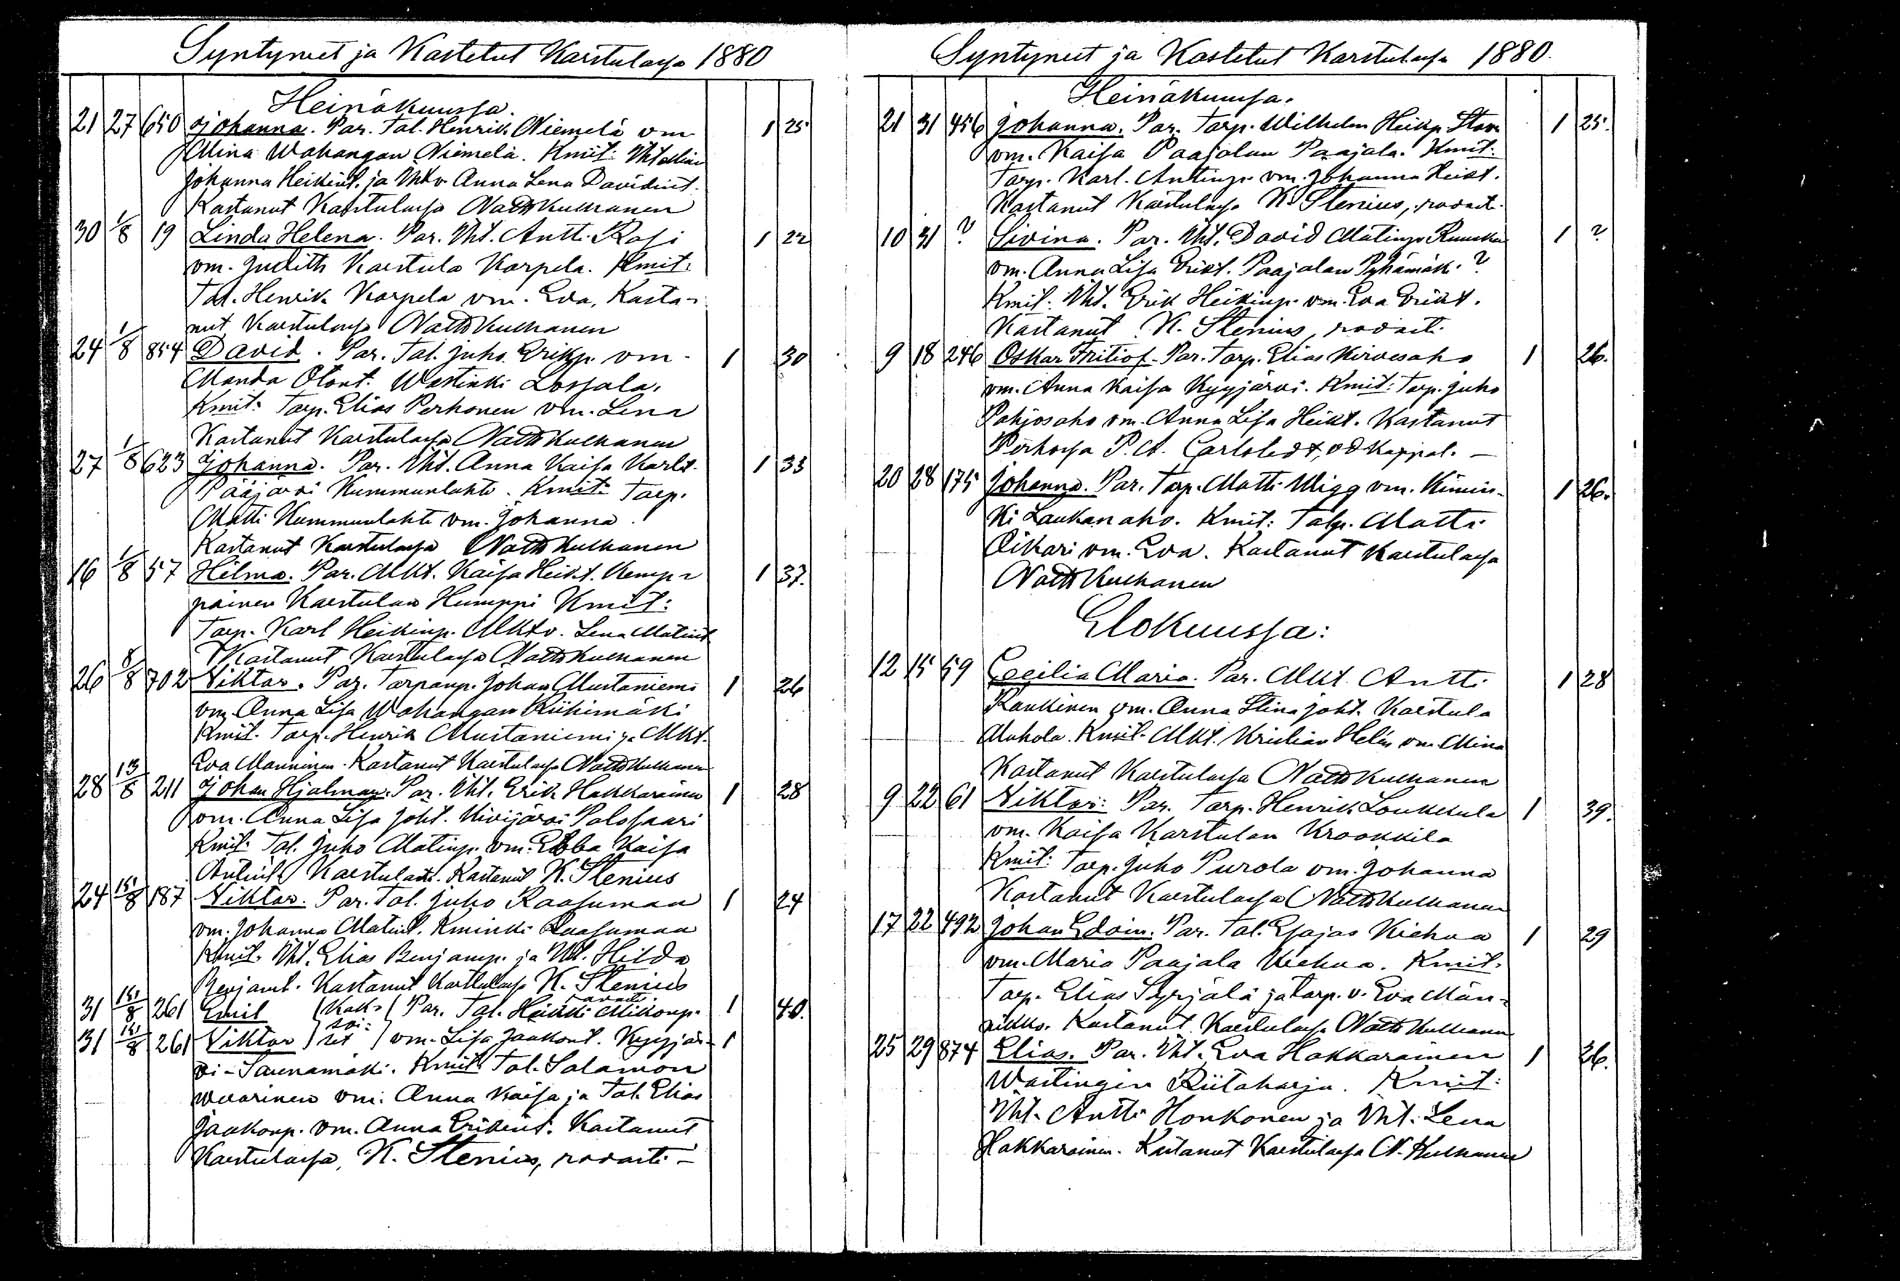 Syntyneet ja Kastetut Karstulassa 1880
Heinäkuussa.
21 27 650 Johanna. Par. Tal. Henrik Niemelä vm 1 25
Mina Wahangan Niemelä. Kmit:
Johanna Heikint. ja Anna Lena Davidint.
Kastanut Karstulassa Natth Kulhanen
30 1/8 19 Linda Helena. Par. Iht. Antti Rossi 1 22
vm. Judith Karstula Karpela. Kmit:
Tal. Henrik Karpela vm. Eva, Kasta-
nut Karstulassa Natth Kulhanen
24 1/8 854 David. Par. Tal. Juho Erikp. vm. 1 30
Manda Otont. Wastinki Lossala.
Kmit: Torp. Elias Perhonen vm. Lena
Kastanut Karstulassa Natth Kulhanen
27 1/8 623 Johanna. Par. Iht. Anna Kaisa Karlt. 1 33
Pääjärvi Kummunlahti. Kmit: Torp.
Matti Kummunlahti vm. Johanna.
Kastanut Karstulassa Natth Kulhanen
16 1/8 57 Hilma. Par. Mkt. Kaisa Heikt. Kemp- 1 37.
painen Karstulan Humppi Kmit:
Torp. Karl Heikinp. Mktv. Lena Matint
Kastanut Karstulassa Natth Kulhanen
26 8/8 702 Viktor. Par. Torpanp. Johan Mustaniemi 1 26
vm. Anna Lisa Wahangan Riihimäki
Kmit. Torp. Henrik Mustaniemi ja Mkt.
Eva Manninen. Kastanut Karstulassa Natth Kulhanen
28 13/8 211 Johan Hjalmar. Par. Iht. Erik Hakkarainen 1 28
vm. Anna Lisa Joht. Kivijärvi Palosaari
Kmit: Tal. Juho Matinp. vm. Ebba Kaisa
Antint. Karstulasta. Kastanut K. Stenius
24 15/8 187 Viktor. Par. Tal. Juho Raasumaa 1 24
vm. Johanna Matint. Kiminki Raasumaa
Kmit. Iht. Elias Benjamp. ja Iht. Hilda
Benjamt. Kastanut Karstulassa K. Stenius
rovasti.
31 15/8 261 Emil (Kak- (Par. Tal. Heikki Mikonp. 1 40.
31 15/8 261 Viktor ) soi- set ) vm. Lisa Jaakont. Kyyjär- 1
vi-Saunamäki. Kmit: Tal. Salamon
Waarinen vm. Anna Kaisa ja Tal. Elias
Jaakonp. vm. Anna Erikint. Kastanut
Karstulassa, K. Stenius, rovasti-
Syntyneet ja Kastetut Karstulassa 1880.
Heinäkuussa.
21 31 456 Johanna. Par. Torp. Wilhelm Heikp. 1 25.
vm. Kaisa Paajalan Paajala. Kmit:
Torp. Karl. Antinp. vm. Johanna Heikt.
Kastanut Karstulassa K. Stenius, rovasti.
10 31 ? Sivina. Par. Iht. David Matinp. Ruuska 1 ?
vm. Anna Lisa Erikt. Paajalan Pyhämäk. ?
Kmit. Iht. Erik Heikinp. vm. Eva Erikt.
Kastanut K. Stenius, rovasti.
9 18 246 Oskar Fritiof. Par. Torp. Elias Hirvesaho 1 26.
vm. Anna Kaisa Kyyjärvi. Kmit: Torp. Juho
Pohjosaho vm. Anna Lisa Heikt. Kastanut
Perhossa P. A. Carlstedt, vd Kappal. -
20 28 175 Johanna. Par. Torp. Matti Wigg vm. Kimin- 1 26.
ki Laukanaho. Kmit: Talp. Matti
Oikari vm. Eva. Kastanut Karstulassa
Natth Kulhanen
Elokuussa:
12 15 59 Cecilia Maria. Par. Mkt Antti 1 28
Raukinen vm. Anna Stina Joht. Karstula
Aahola. Kmit. Mkt. Kristian Helin vm. Mina
Kastanut Karstulassa Natth Kulhanen
9 22 61 Viktor: Par. Torp. Henrik Loukkula 1 39.
vm. Kaisa Karstulan Krookkila
Kmit: Torp. Juho Purola vm. Johanna
Kastanut Karstulassa Natth Kulhanen
17 22 492 Johan Edvin. Par. Tal. Esajas Kiehua 1 29
vm. Maria Paajala Kiehua. Kmit.
Torp. Elias Syrjälä ja torp. v. Eva Män-
nikkö. Kastanut Karstulassa Natth Kulhanen
25 29 874 Elias. Par. Iht. Eva Hakkarainen 1 26.
Wastingin Riitaharju. Kmit:
Iht. Antti Honkonen ja Iht. Lena
Hakkarainen. Kastanut Karstulassa N. Kulhanen